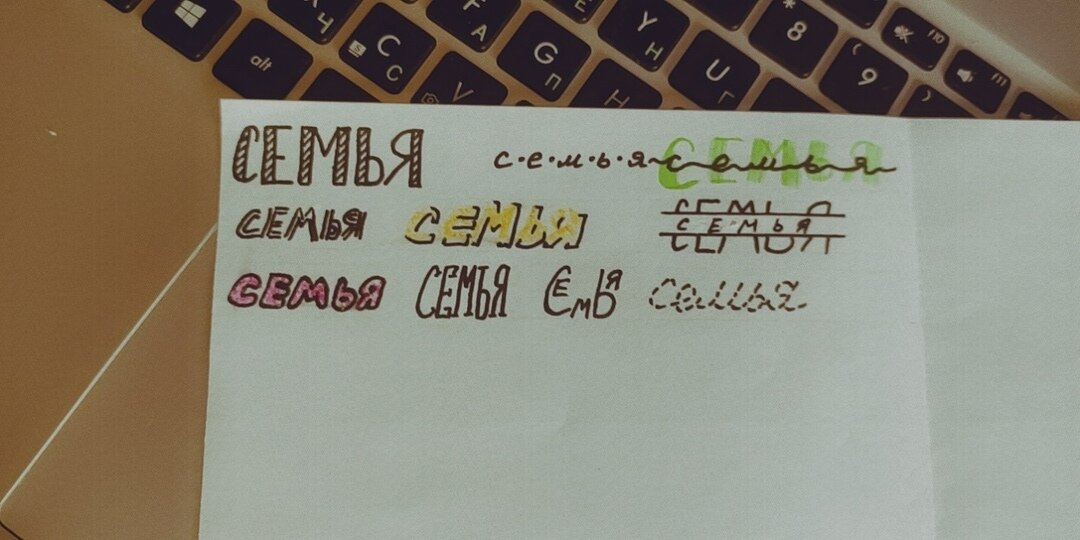 Ч 8 F10
alt С С F А G П Y Н U Г ( 9 F11
V Н )
СЕМЬЯ с·е·м·ь·я семья СЕМЬЯ
СЕМЬЯ СЕМЬЯ СЕМЬЯ СЕМЬЯ
СЕМЬЯ СЕМЬЯ СЕМЬЯ семья